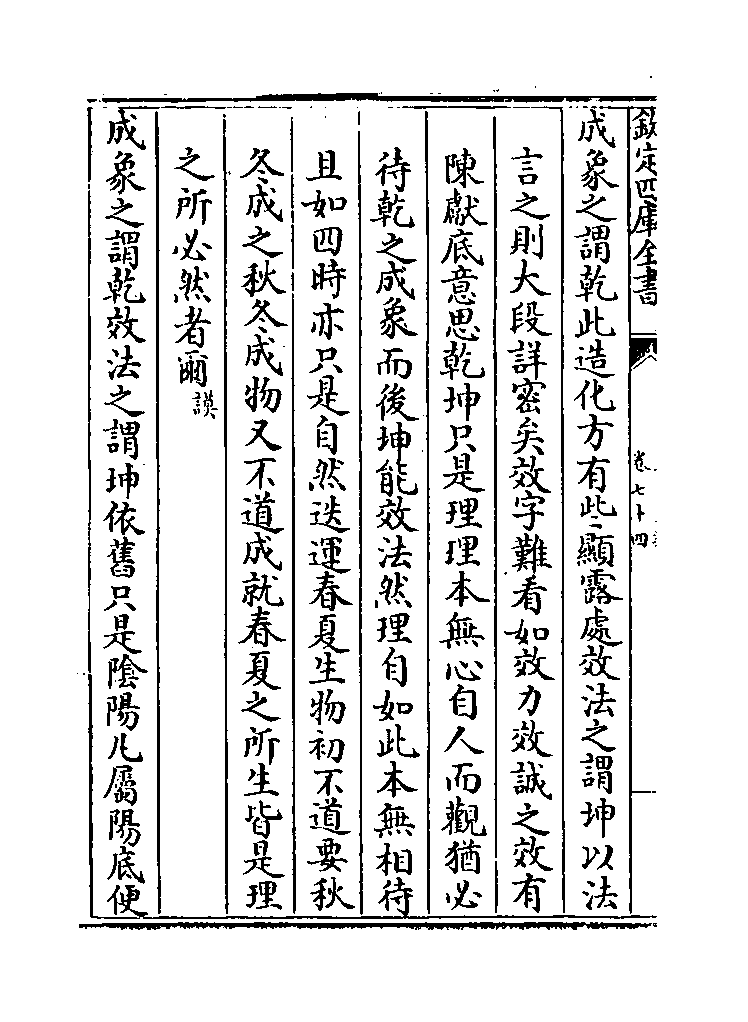 欽定四庫全書
卷七十四
成象之謂乾此造化方有些顯露處效法之謂坤以法
言之則大段詳密矣效字難看如效力效誠之效有
陳獻底意思乾坤只是理理本無心自人而觀猶必
待乾之成象而後坤能效法然理自如此本無相待
且如四時亦只是自然迭運春夏生物初不道要秋
冬成之秋冬成物又不道成就春夏之所生皆是理
之所必然者爾謨
成象之謂乾效法之謂坤依舊只是陰陽凡屬陽底便